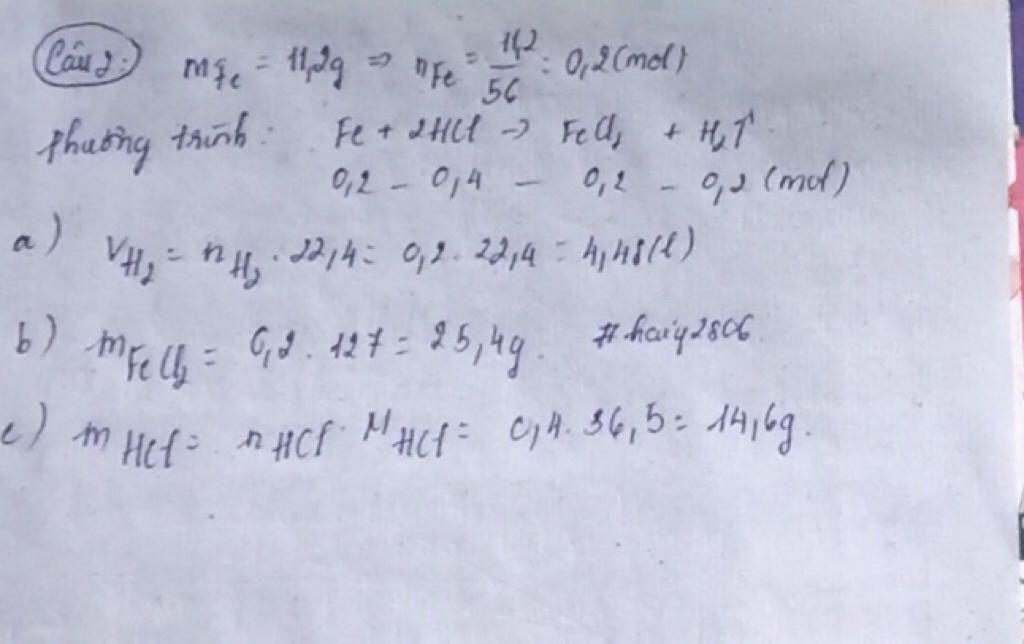 Câu 2: mFe = 11,2g => nFe = 11,2/56 = 0,2 (mol)
phương trình: Fe + 2HCl -> FeCl2 + H2↑
0,2 - 0,4 - 0,2 - 0,2 (mol)
a) VH2 = nH2 . 22,4 = 0,2 . 22,4 = 4,48 (l)
b) mFeCl2 = 0,2 . 127 = 25,4g. #haiy2806
c) mHCl = nHCl . MHCl = 0,4 . 36,5 = 14,6g.